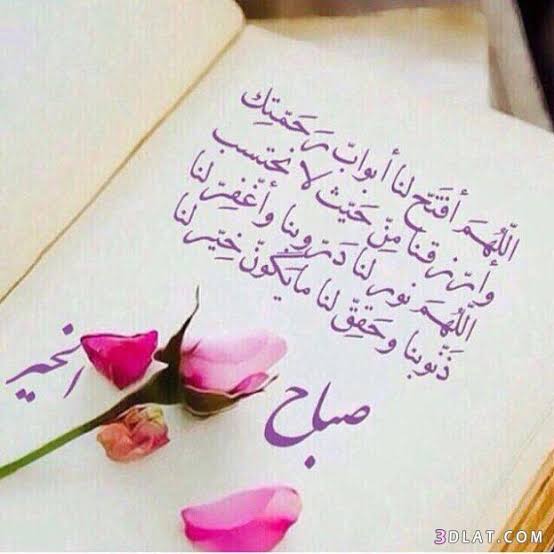 اللّهُمَ أفتَح لنا أبوابّ رَحَمّتِك
وأرّزقنا مِنّ حَيّث لا نحتسب
اللّهُمَ نور لنا دَرّوبنا وأغّفِرّ لنا
ذّنّوبنا وحَقِقّ لنا مايَكونّ خِيّر لنا
صباح الخير
3DLAT.COM